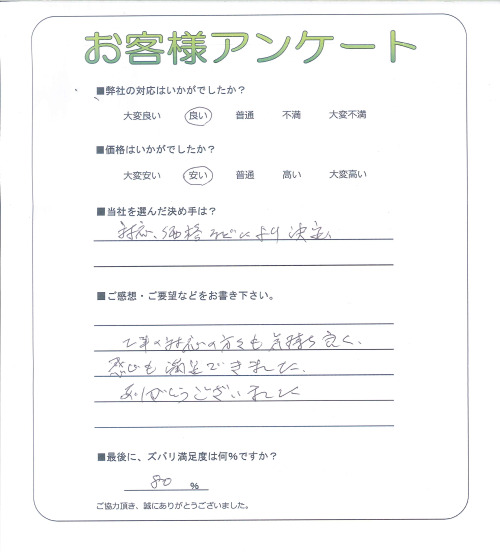 お客様アンケート
■弊社の対応はいかがでしたか？
大変良い 良い 普通 不満 大変不満
■価格はいかがでしたか？
大変安い 安い 普通 高い 大変高い
■当社を選んだ決め手は？
対応、価格などにより決定、
■ご感想・ご要望などをお書き下さい。
工事の対応の方々も気持ち良く、
も満足できました、
ありがとうございました
■最後に、ズバリ満足度は何％ですか？
80 ％
ご協力頂き、誠にありがとうございました。